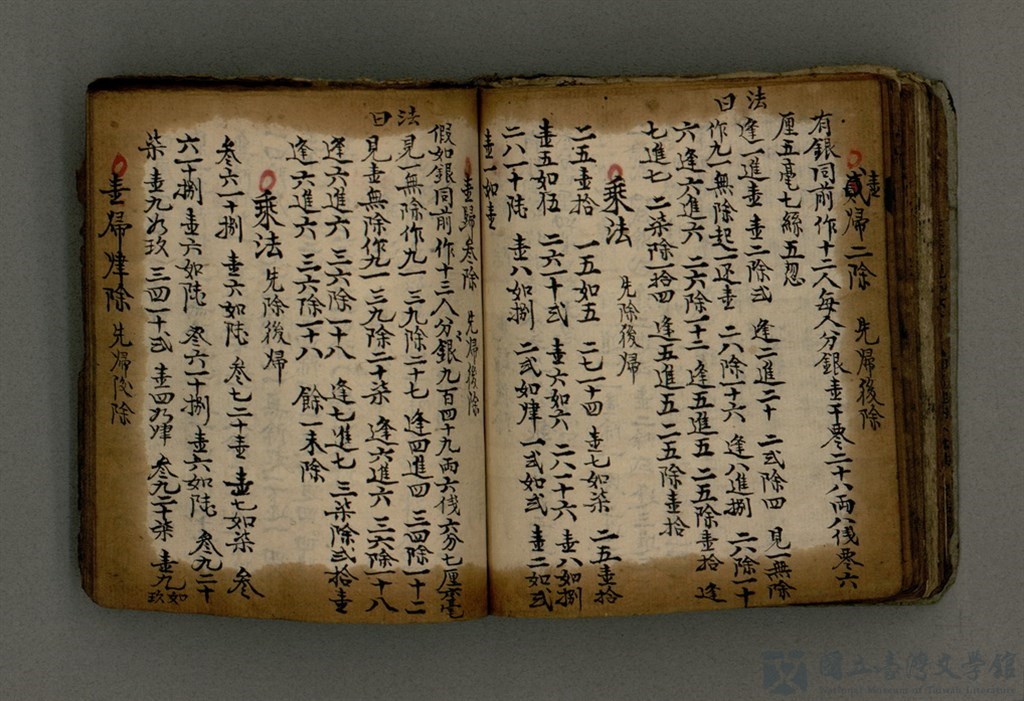 壹貳歸二除 先歸後除
有銀同前作十二人每人分銀壹千零二十八兩八伐零六
厘五毫七絲五忽
法曰 逢一進壹 壹二除弍 逢二進二十 二弍除四 見一無除
作九一無除起一还壹 二八除一十六 逢八進捌 二六除一十
六 逢六進六 二六除一十二 逢五進五 二五除壹拾 逢
七進七 二柒除一拾四 逢五進五 二五除壹拾
乘法 先除後歸
二五壹拾 一五如五 二七一十四 壹七如柒 二五壹拾
壹五如伍 二六一十弍 壹六如六 二八一十六 壹八如捌
二八一十陸 壹八如捌 二弍如肆 一弍如弍 壹二如弍
壹一如壹
壹歸叁除 先歸後除
假如銀同前作十三人分銀九百四十九兩六伐六分七厘
法曰 見一無除作九一 三九除二十七 逢四進四 三四除一十二
見壹無除作九一 三九除二十柒 逢六進六 三六除一十八
逢六進六 三六除一十八 逢七進七 三柒除弍拾壹
逢六進六 三六除一十八 餘一未除
乘法 先除後歸
叁六一十捌 壹六如陸 叁七二十壹 壹七如柒 叁
六一十捌 壹六如陸 叁六一十捌 壹六如陸 叁九二十
柒 壹九如玖 三四一十弍 壹四如肆 叁九二十柒 壹九如玖
壹歸肆除 先歸後除
國立臺灣文學館
National Museum of Taiwan Literature